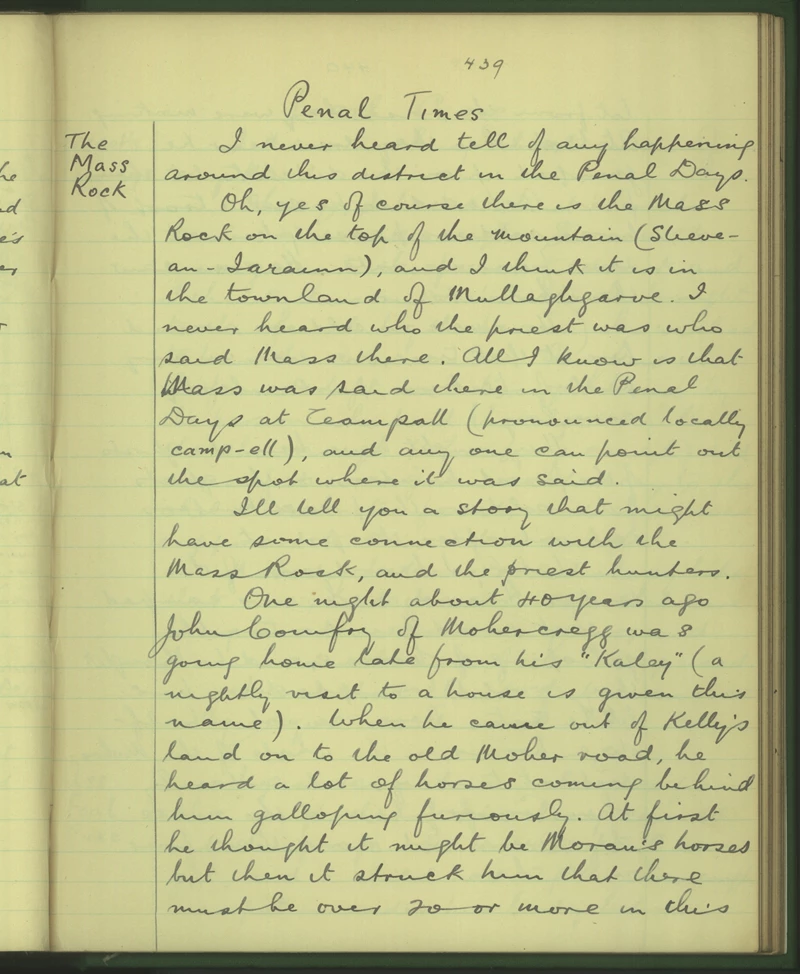 439
Penal Times
The
Mass
Rock
I never heard tell of any happening
around this district in the Penal Days.
Oh, yes of course there is the Mass
Rock on the top of the mountain (Slieve-
an-Iarainn), and I think it is in
the townland of Mullaghgarve. I
never heard who the priest was who
said Mass there. All I know is that
Mass was said there in the Penal
Days at Teampall (pronounced locally
camp-ell), and any one can point out
the spot where it was said.
I'll tell you a story that might
have some connection with the
Mass Rock, and the priest hunters.
One night about 40 years ago
John Comfry of Mohercregg was
going home late from his "Kaley" (a
nightly visit to a house is given this
name). When he came out of Kelly's
land on to the old Moher road, he
heard a lot of horses coming behind
him galloping furiously. At first
he thought it might be Moran's horses
but then it struck him that there
must be over 20 or more in this